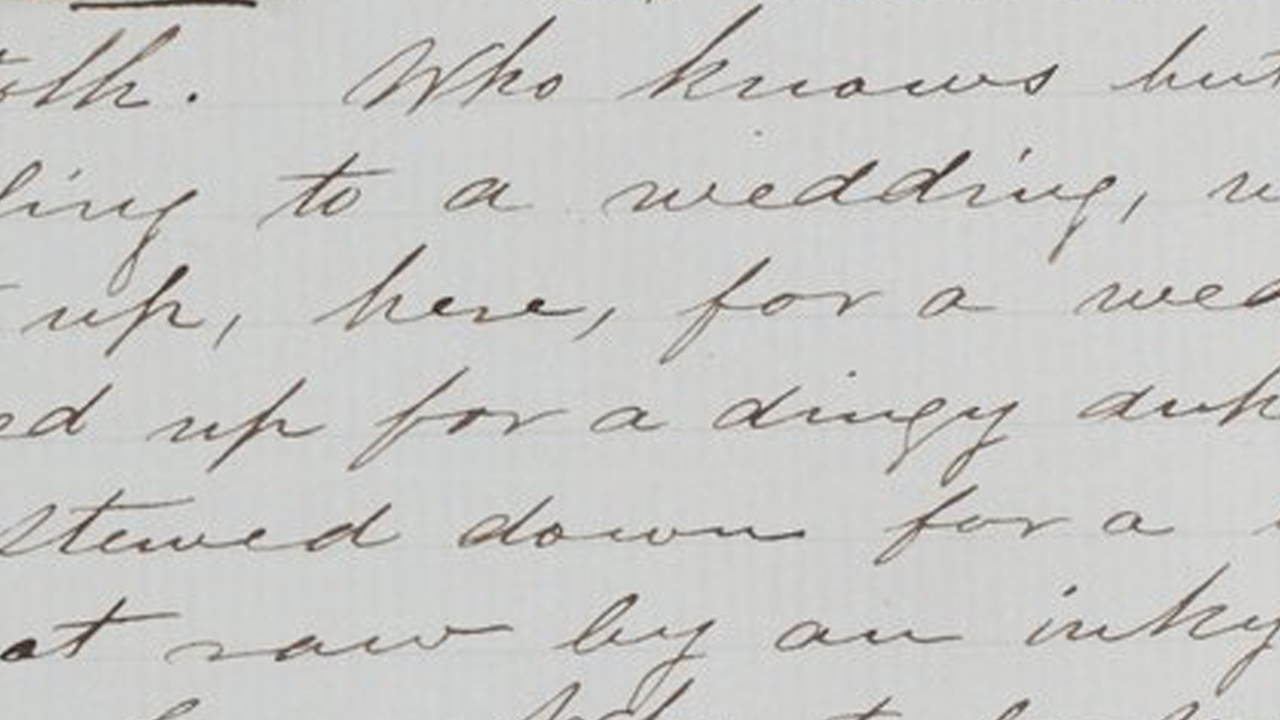 Who knows but
to a wedding,
up, here, for a wed
ed up for a dingy duk
stewed down for a
at raw by an inky